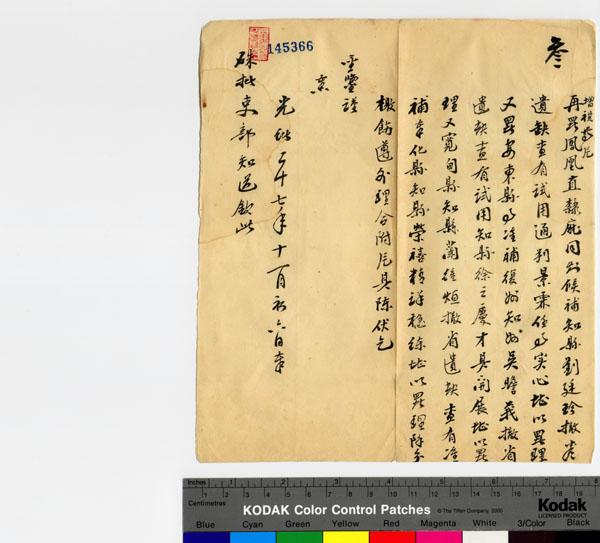 叁
增祺等片
再署鳳凰直隸廳同知候補知縣劉廷珍撤省
遺缺查有試用通判景霖任事實心堪以署理
又署安東縣事准補復州知州吳瞻莪撤省
遺缺查有試用知縣徐之慶才具開展堪以署
理又寬甸縣知縣蘭維烜撤省遺缺查有准
補奉化縣知縣榮禧精詳穩練堪以署理除分
檄飭遵外理合附片具陳伏乞
聖鑒謹
奏
光緒二十七年十一月初六日奉
硃批吏部知道欽此
145366
Inches 1 2 3 4 5 6 7
Centimetres 1 2 3 4 5 6 7 8 9 10 11 12 13 14 15 16 17 18 19
KODAK Color Control Patches
© The Tiffen Company, 2000
Kodak
LICENSED PRODUCT
Blue Cyan Green Yellow Red Magenta White 3/Color Black